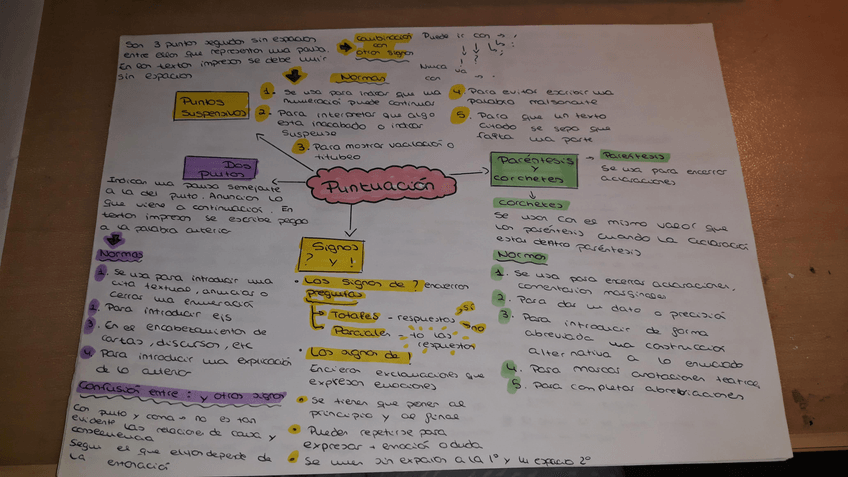 Son 3 puntos seguidos sin espacios
entre ellos que representan una pausa.
En los textos impresos se debe unir
sin espacios
Combinación
con
otros signos
Puede ir con → , :
; ?
Nunca va
con → .
Puntos
Suspensivos
Normas
1. Se usa para indicar que una
numeración puede continuar
2. Para interpretar que algo
está inacabado o indicar
suspense
3. Para mostrar vacilación o
titubeo
4. Para evitar escribir una
palabra malsonante
5. Para que un texto
citado se sepa que
falta una parte
Dos
puntos
Indican una pausa semejante
a la del punto. Anuncian lo
que viene a continuación. En
textos impresos se escribe pegado
a la palabra anterior
Normas
1. Se usa para introducir una
cita textual, anunciar o
cerrar una enumeración
2. Para introducir ejs
3. En el encabezamiento de
cartas, discursos, etc
4. Para introducir una explicación
de lo anterior
Confusión entre : y otros signos
Con punto y coma → no es tan
evidente las relaciones de causa y
consecuencia
Segui es que elijas depende de
la entonación
Puntuación
Signos
? y !
• Los signos de ? encierran
preguntas
→ Totales - respuestas → sí
→ no
→ Parciales - to las
respuestas
• Los signos de !
Encierran exclamaciones que
expresan emociones
• Se tienen que poner al
principio y al final
• Pueden repetirse para
expresar + emoción o duda
• Se unen sin espacio a la 1º y un espacio 2º
Paréntesis
y
corchetes
→ Paréntesis
Se usa para encerrar
aclaraciones
corchetes
Se usan con el mismo valor que
los paréntesis cuando la aclaración
está dentro paréntesis
Normas
1. Se usa para encerrar aclaraciones,
comentarios marginales
2. Para dar un dato o precisión
3. Para introducir de forma
abreviada una construcción
alternativa a lo enunciado
4. Para marcas anotaciones teatrales
5. Para completas abreviaciones